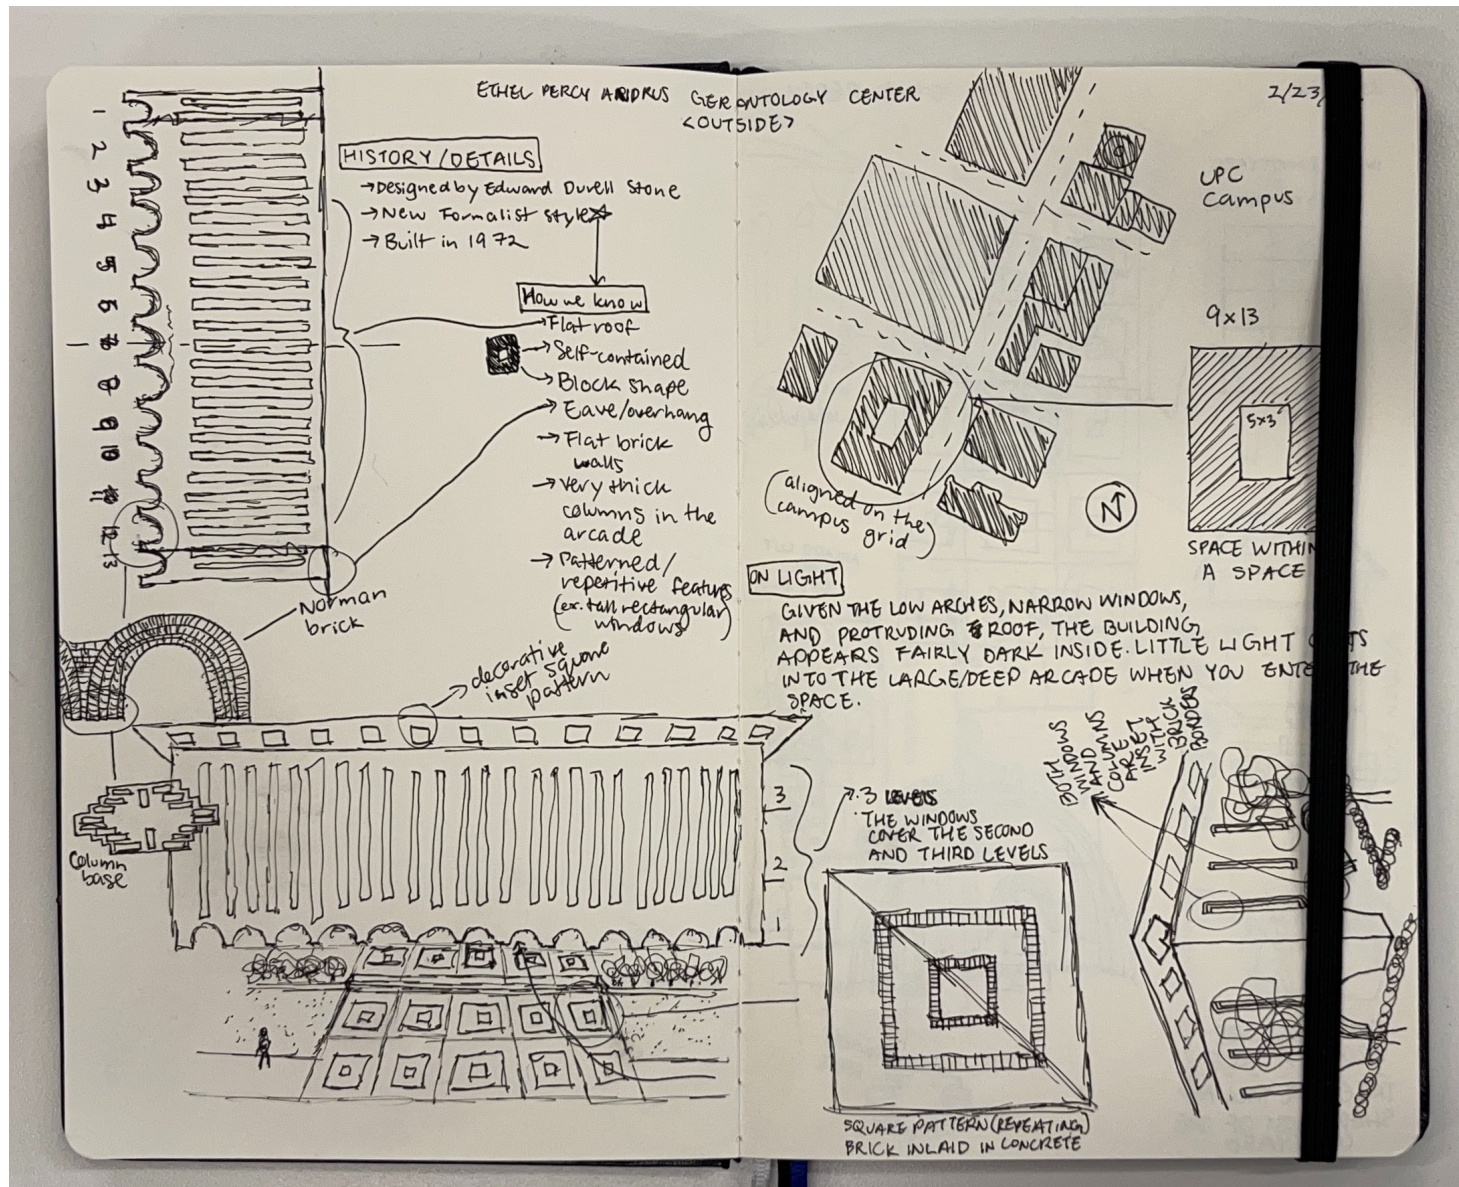 ETHEL PERCY ANDRUS GERONTOLOGY CENTER
<OUTSIDE>
2/23/
1
2
3
4
5
6
7
8
9
10
11
12
13
HISTORY/DETAILS
→Designed by Edward Durell Stone
→New Formalist style
→Built in 1972
How we know
→Flat roof
→Self-contained
→Block shape
→Eave/overhang
→Flat brick
walls
→very thick
columns in the
arcade
→Patterned/
repetitive features
(ex. tall rectangular)
windows
Norman
brick
decorative
inset square
pattern
Column
base
3
2
1
UPC
Campus
(aligned on the
campus grid)
N
9x13
5x3
SPACE WITHIN
A SPACE
ON LIGHT
GIVEN THE LOW ARCHES, NARROW WINDOWS,
AND PROTRUDING ROOF, THE BUILDING
APPEARS FAIRLY DARK INSIDE. LITTLE LIGHT
INTO THE LARGE/DEEP ARCADE WHEN YOU THE
SPACE.
3 LEVELS
THE WINDOWS
COVER THE SECOND
AND THIRD LEVELS
BOTH
WINDOWS
AND
COLUMNS
ARE
INSET
WITH
BRICK
BORDERS
SQUARE PATTERN (REPEATING)
BRICK INLAID IN CONCRETE